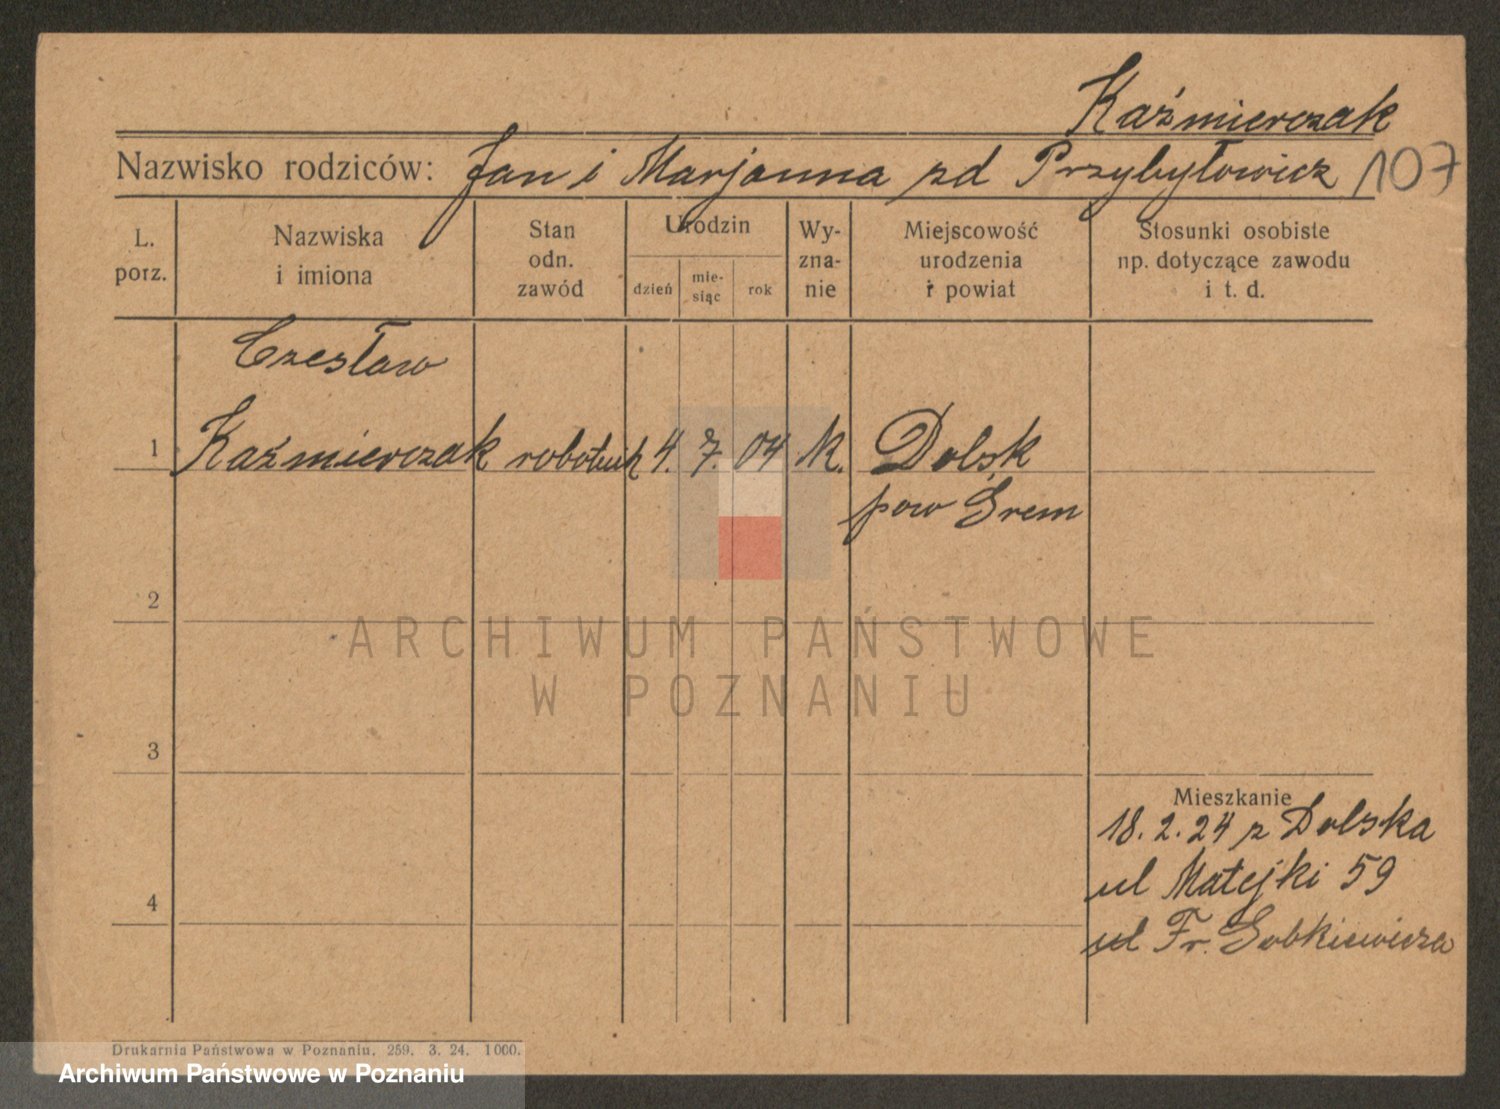 Kaźmierczak
Nazwisko rodziców: Jan i Marjanna zd Przybyłowicz 107
L. porz.
Nazwiska i imiona
Stan odn. zawód
Urodzin
dzień
mie-siąc
rok
Wy-zna-nie
Miejscowość urodzenia i powiat
Stosunki osobiste np. dotyczące zawodu i t. d.
Czesław
1 Kaźmierczak robotnik 4. 7. 04 k. Dolsk
pow Śrem
2
3
Mieszkanie
18. 2. 24 z Dolska
ul Matejki 59
4
ul Fr.
ARCHIWUM PAŃSTWOWE
W POZNANIU
Drukarnia Państwowa w Poznaniu. 259. 3. 24. 1000.
Archiwum Państwowe w Poznaniu